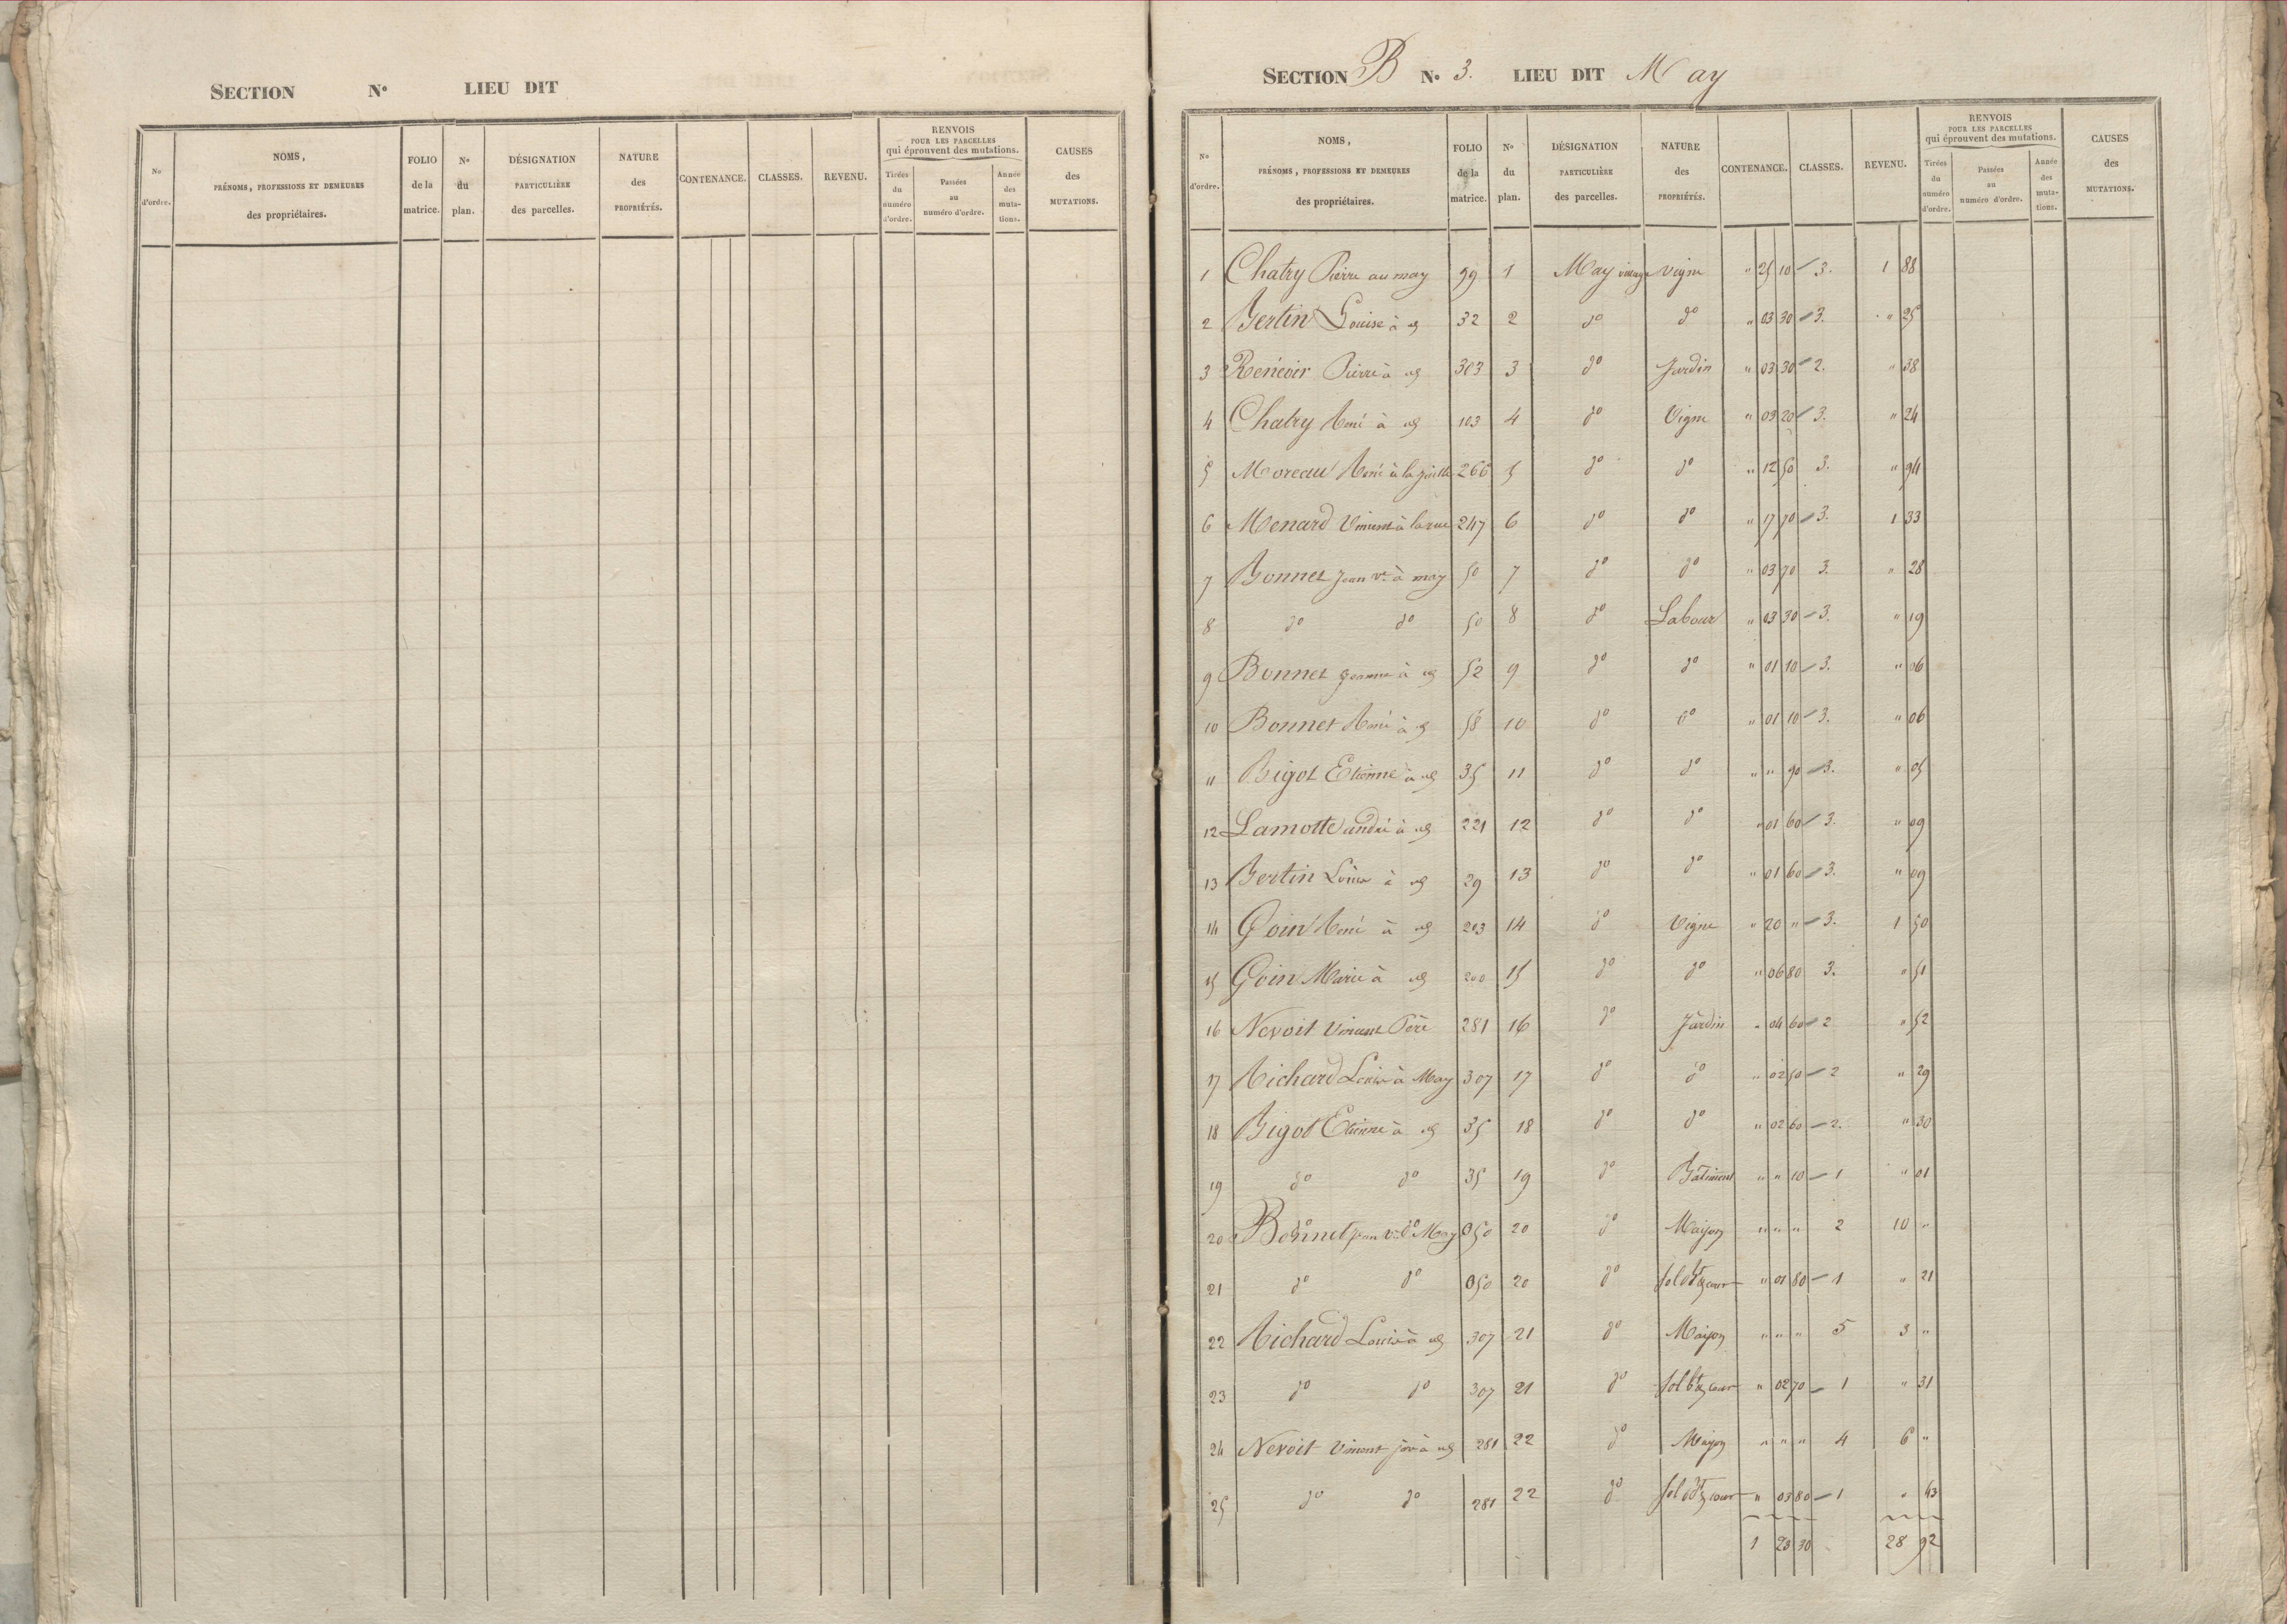 SECTION N° LIEU DIT
No d'ordre. NOMS, PRÉNOMS, PROFESSIONS ET DEMEURES des propriétaires. FOLIO de la matrice. No du plan. DÉSIGNATION PARTICULIÈRE des parcelles. NATURE des PROPRIÉTÉS. CONTENANCE. CLASSES. REVENU. RENVOIS POUR LES PARCELLES qui éprouvent des mutations. Tirées du numéro d'ordre. Passées au numéro d'ordre. Année des mutations. CAUSES des MUTATIONS.
SECTION B N° 3. LIEU DIT May
No d'ordre. NOMS, PRÉNOMS, PROFESSIONS ET DEMEURES des propriétaires. FOLIO de la matrice. No du plan. DÉSIGNATION PARTICULIÈRE des parcelles. NATURE des PROPRIÉTÉS. CONTENANCE. CLASSES. REVENU. RENVOIS POUR LES PARCELLES qui éprouvent des mutations. Tirées du numéro d'ordre. Passées au numéro d'ordre. Année des mutations. CAUSES des MUTATIONS.
1 Chatry Pierre au may 99 1 May village vigne " 25 10 3. 1 88
2 Bertin Louise à 32 2 do do " 03 30 3. " 25
3 Renévir Pierre à 303 3 do Jardin " 03 30 2. " 38
4 Chatry René à 103 4 do Vigne " 03 20 3. " 24
5 Moreau René à la 266 5 do do " 12 50 3. " 94
6 Menard Vincent à la rue 247 6 do do " 17 70 3. 1 33
7 Bonnet Jean ve à may 50 7 do do " 03 70 3. " 28
8 do do 50 8 do Labour " 03 30 3. " 19
9 Bonnet Jeanne à 52 9 do do " 01 10 3. " 06
10 Bonnet René à 58 10 do do " 01 10 3. " 06
11 Bigot Etienne à 35 11 do do " " 90 3. " 05
12 Lamotte andré à 221 12 do do " 01 60 3. " 09
13 Bertin Louis à 29 13 do do " 01 60 3. " 09
14 Goin René à 203 14 do Vigne " 20 " 3. 1 50
15 Goin Marie à 200 15 do do " 06 80 3. " 51
16 Nevoit Vincent Père 281 16 do Jardin " 04 60 2 " 52
17 Richard Louis à May 307 17 do do " 02 50 2 " 29
18 Bigot Etienne à 35 18 do do " 02 60 2. " 30
19 do do 35 19 do Bâtiment " " 10 1 " 01
20 Bonnet Jean ve May 50 20 do Maison " " " 2 10 "
21 do do 50 20 do sol bt & cour " 01 80 1 " 21
22 Richard Louis à 307 21 do Maison " " " 5 3 "
23 do do 307 21 do sol bt & cour " 02 70 1 " 31
24 Nevoit Vincent à 281 22 do Maison " " " 4 6 "
25 do do 281 22 do sol bt & cour " 03 80 1 " 43
1 23 30 28 92